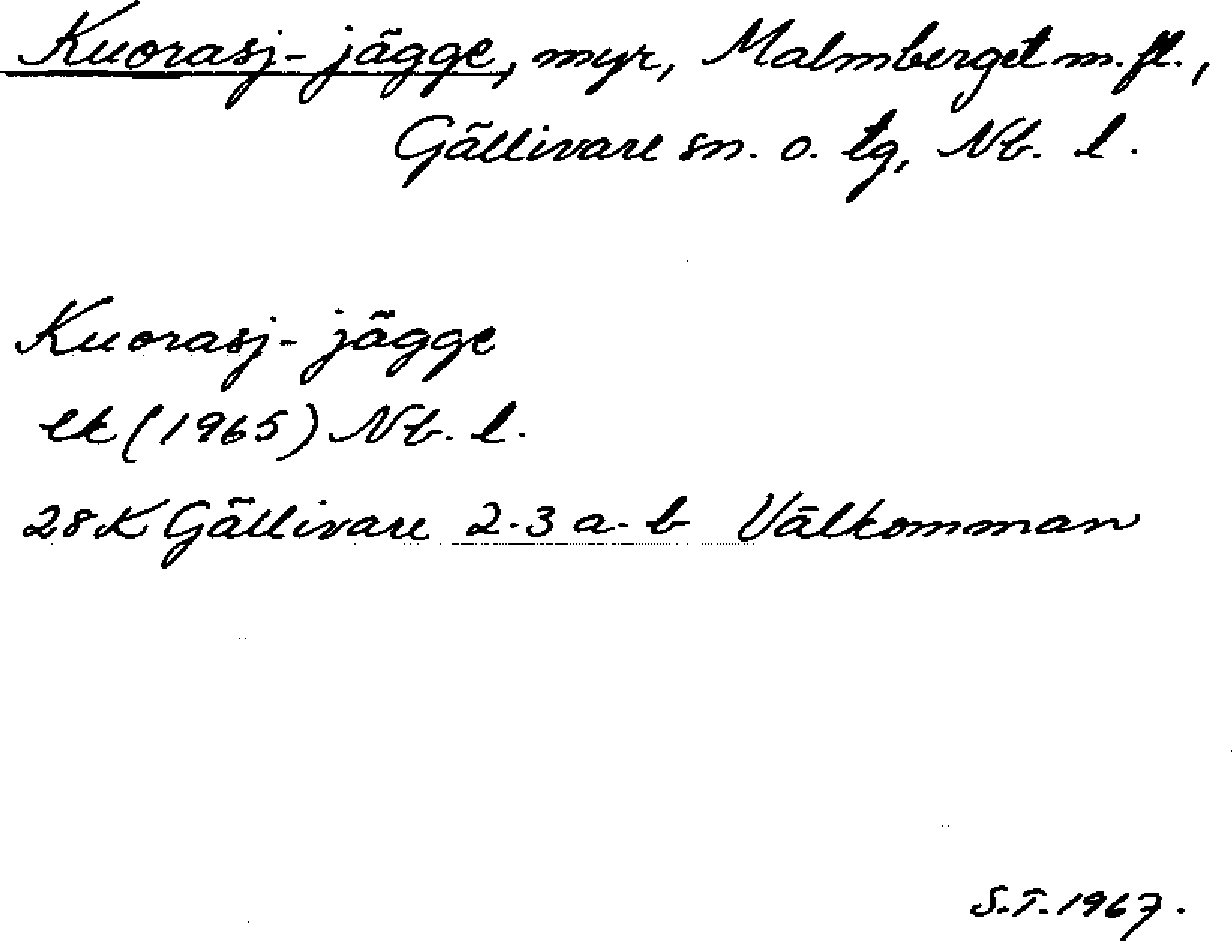 Kuorasj-jägge, myr, Malmberget m. fl.,
Gällivare sn. o. tg, Nb. l.
Kuorasj-jägge
ek (1965) Nb. l.
28K Gällivare 2-3 a-b Välkomman
S.T. 1967.